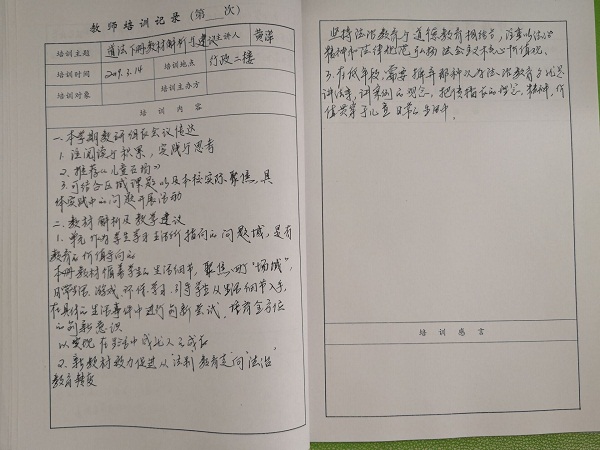 教师培训记录（第 次）
培训主题 道法下册教材解析与建议 主讲人 黄萍
培训时间 2019.3.14 培训地点 行政二楼
培训对象 培训主办方
培训内容
一、本学期教研组长会议传达
1、注阅读与积累，实践与思考
2、推荐《儿童立场》
3、可结合区域课题以及本校实际聚焦，具
体实践中的问题开展活动
二、教材解析及教学建议
1、单元内容学生学习生活所指向的问题域，是有
教育的价值导向的
本册教材循着学生的生活细节，聚焦四个“场域”，
日常生活、游戏、环保、学习，引导学生从生活细节入手，
在具体的生活事件中进行创新尝试，培育全方位
的创新意识
以实现在生活中成长人之成长
2、新教材致力促进从“法制”教育走向“法治”
教育转变
坚持法治教育与道德教育相结合，注重以法治
精神和法律规范弘扬社会主义核心价值观。
3、在低年级，需要摒弃那种以为法治教育就是
讲法条，讲案例的观念，把传指长的理念、精神，价
值贯穿于儿童日常的生活中。
培训感言